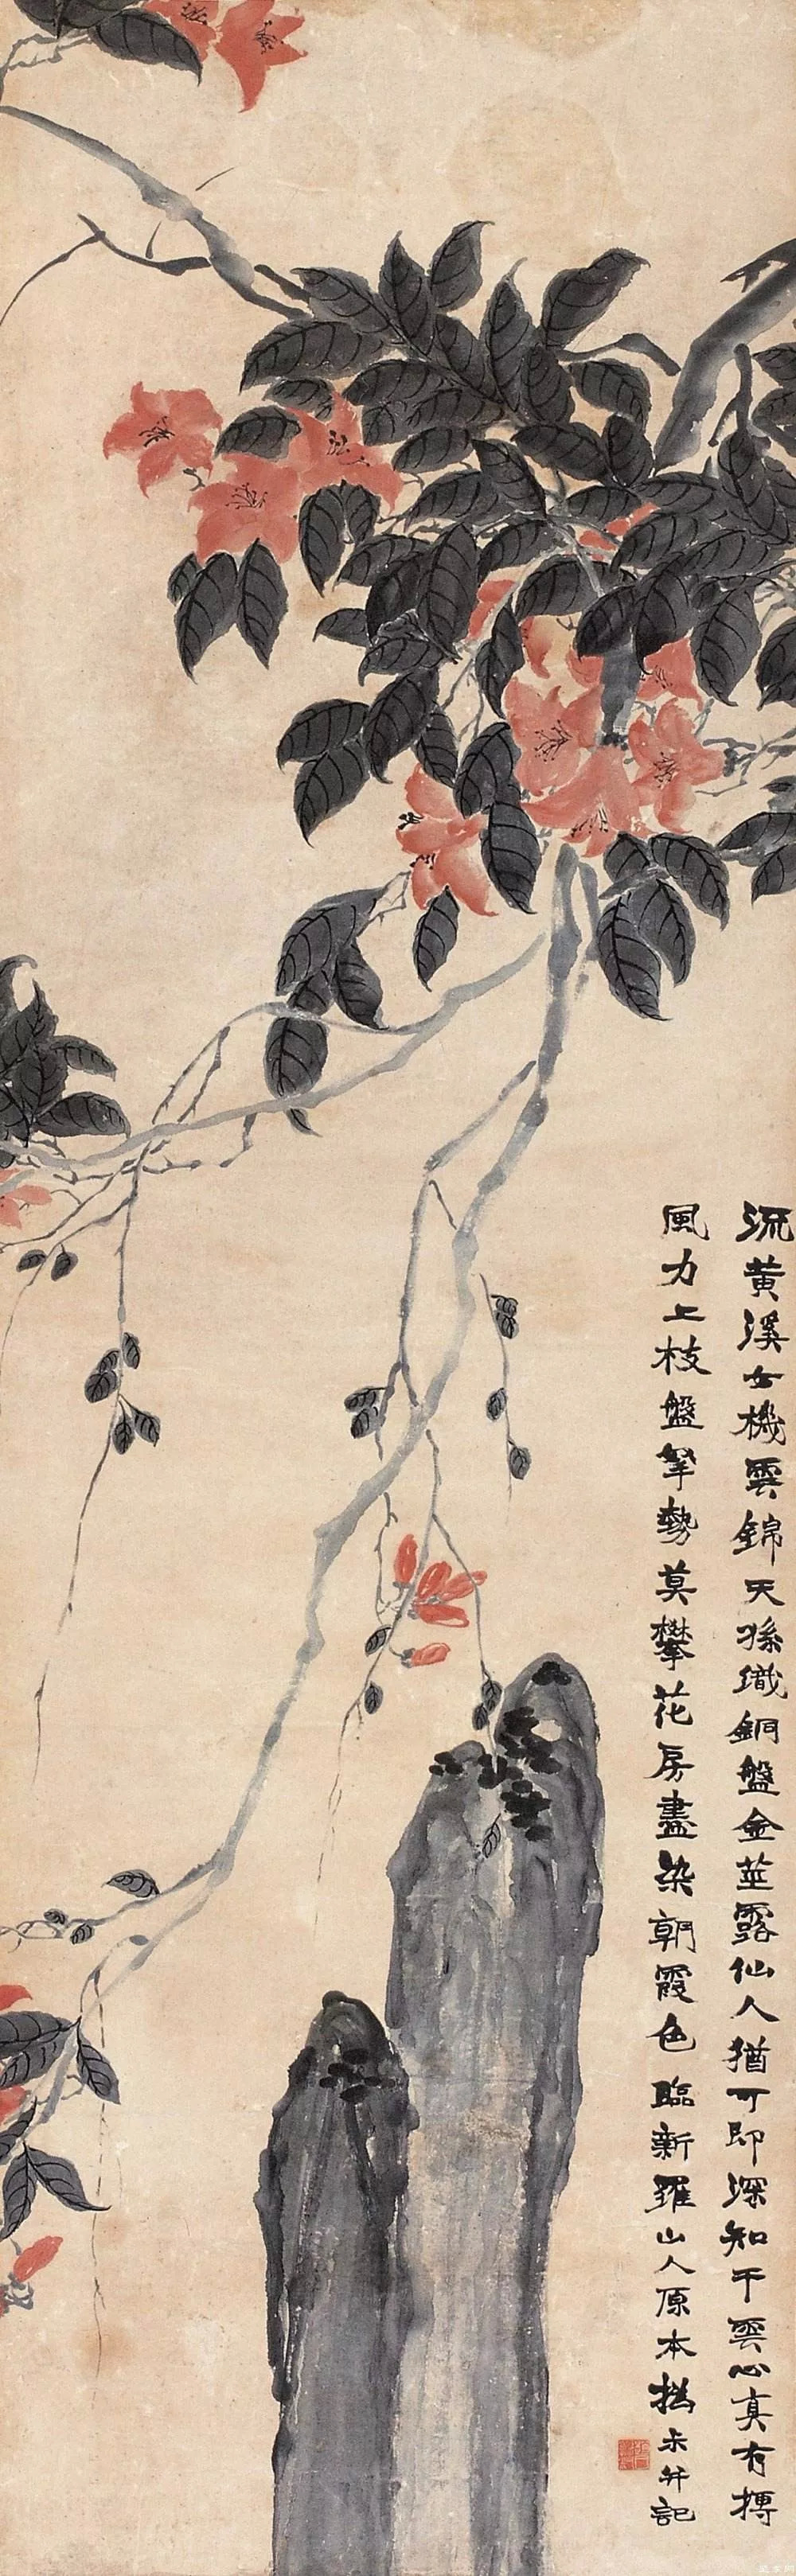 流黄溪女機雲錦天孫織銅盤金莖露仙人猶可即深知干雲心真有摶
風力上枝盤拏勢莫攀花房盡染朝霞色臨新羅山人原本撝尗并記